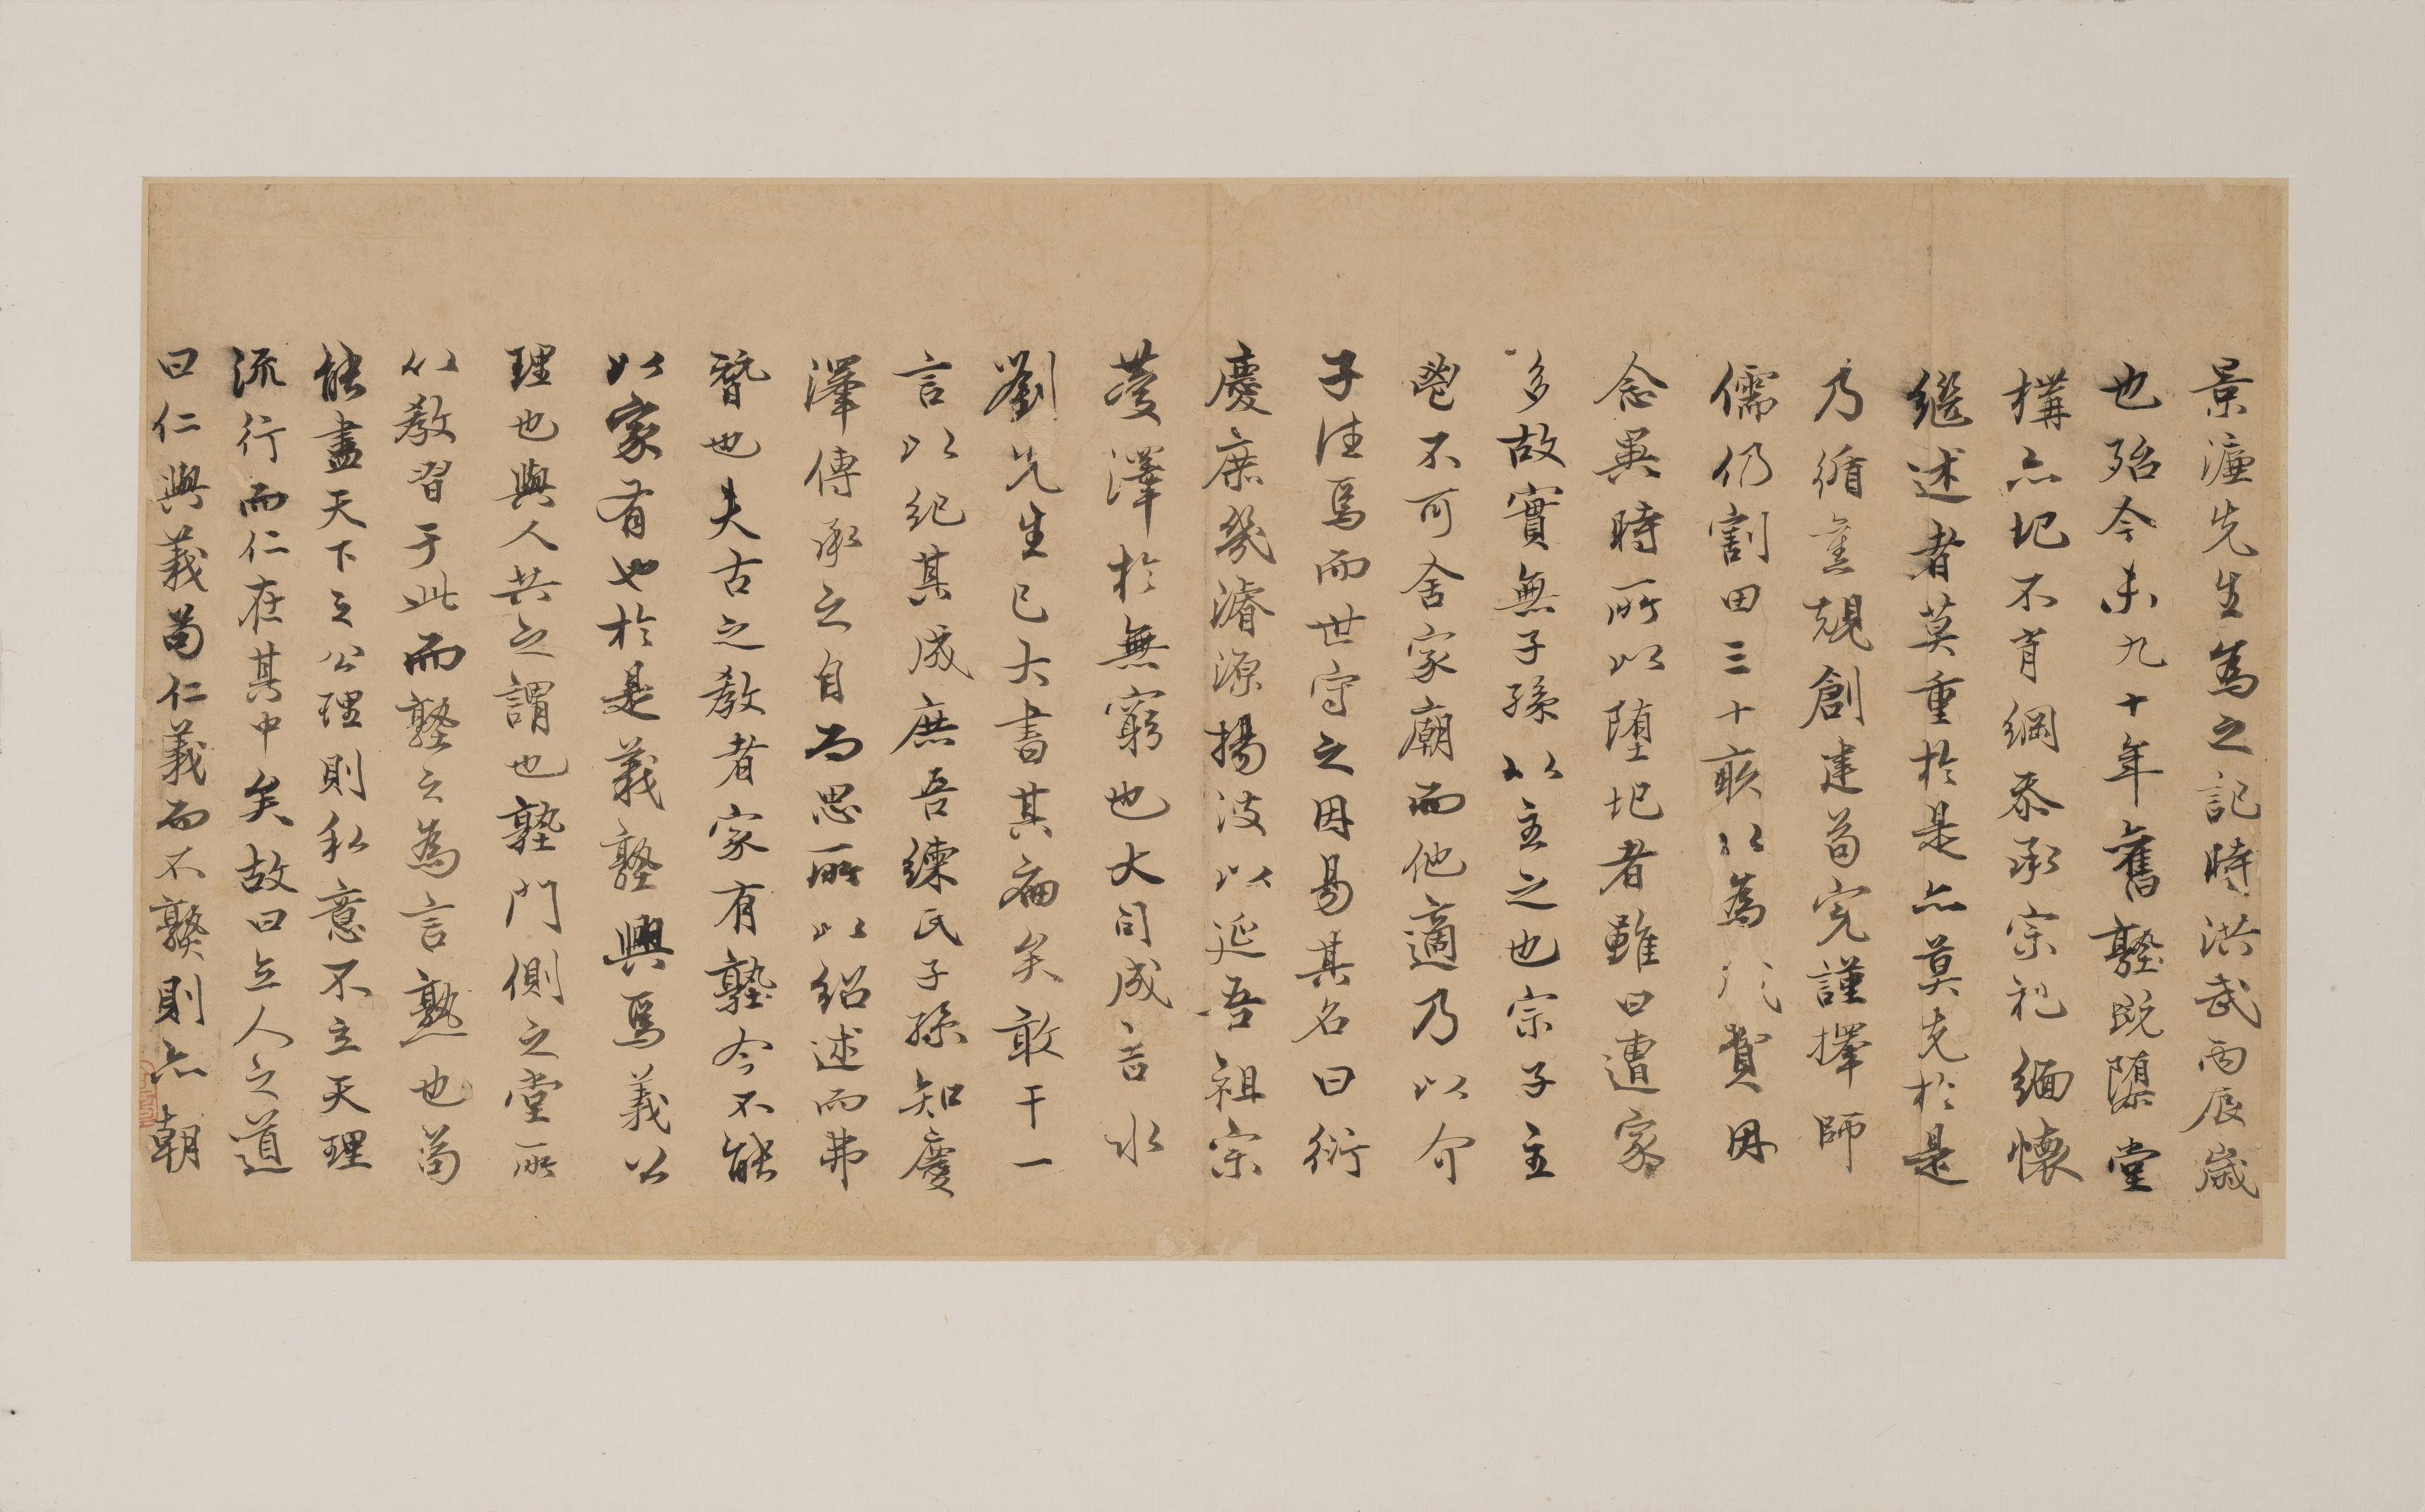 景濂先生為之記時洪武丙辰歲
也殆今未九十年舊塾既隳堂
構亦圮不肖綱忝承宗祀緬懷
繼述者莫重於是亦莫先於是
乃循舊規創建苟完謹擇師
儒仍割田三十畝以為 費因
念異時所以堕圮者雖曰遭家
多故實無子孫以主之也宗子主
鬯不可舍家廟而他適乃以介
子法焉而世守之因易其名曰衍
慶庶幾濬源揚波以延吾祖宗
慶澤於無窮也大司成吉水
劉先生已大書其扁矣敢干一
言以紀其成庶吾練氏子孫知慶
澤傳承之自而思所以紹述而弗
替也夫古之教者家有塾今不能
以家有也於是義塾興焉義以
理也與人共之謂也塾門側之堂所
以教習于此而塾之為言熟也苟
能盡天下之公理則私意不立天理
流行而仁在其中矣故曰立人之道
曰仁與義苟仁義而不熟則亦朝